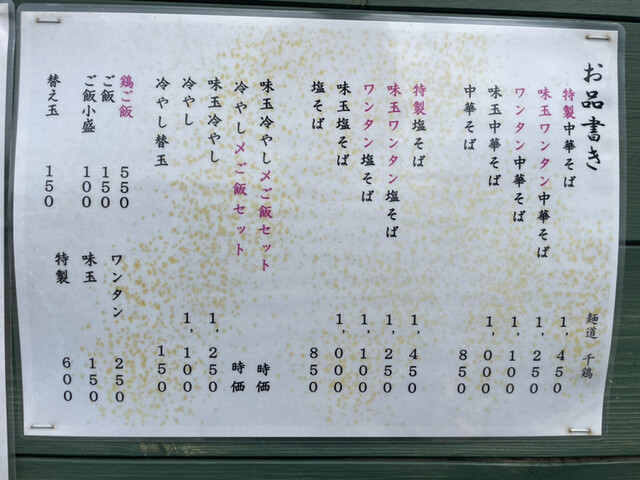 お品書き
麺道 千鶏
特製中華そば 1,450
味玉ワンタン中華そば 1,250
ワンタン中華そば 1,100
味玉中華そば 1,000
中華そば 850
特製塩そば 1,450
味玉ワンタン塩そば 1,250
ワンタン塩そば 1,100
味玉塩そば 1,000
塩そば 850
味玉冷やし〆ご飯セット 時価
冷やし〆ご飯セット 時価
味玉冷やし 1,250
冷やし 1,100
冷やし替玉 150
鶏ご飯 550
ご飯 150
ご飯小盛 100
替え玉 150
ワンタン 250
味玉 150
特製 600